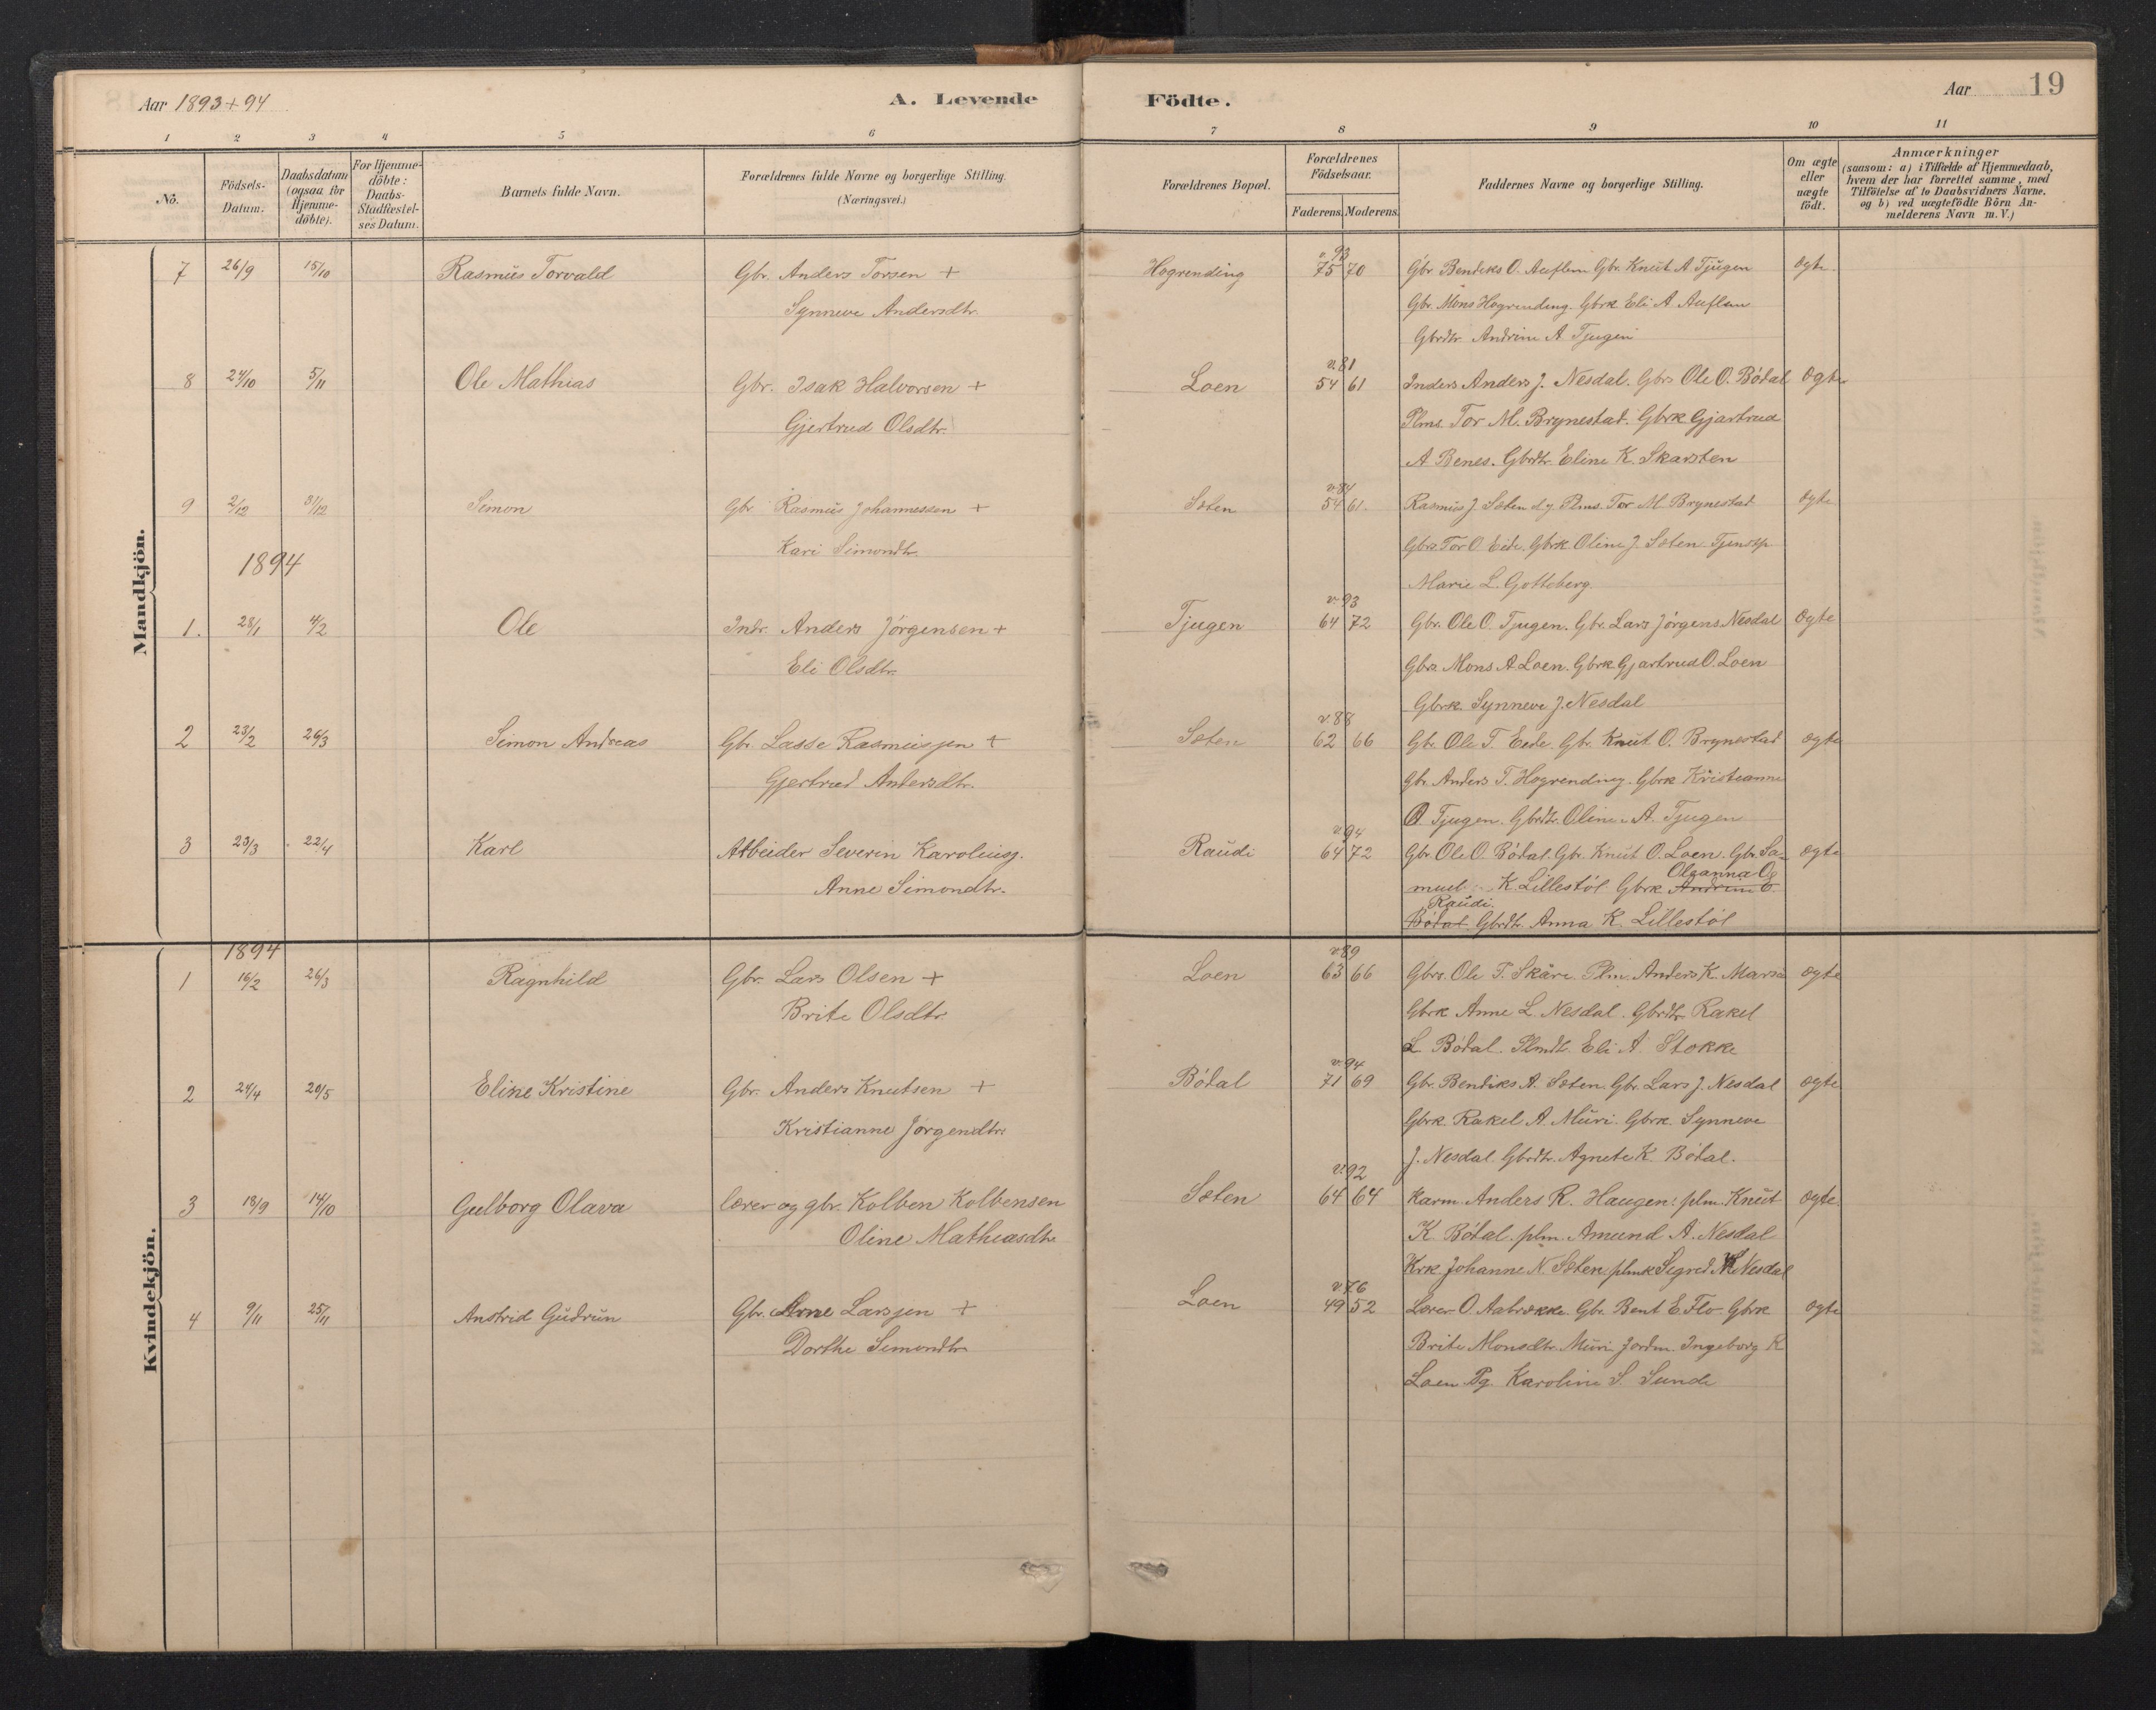 Aar 1893+94
A. Levende Födte.
Aar 19
1 2 3 4 5 6 7 8 9 10 11
No.
Födsels-Datum.
Daabsdatum (ogsaa for Hjemme-döbte).
For Hjemme-döbte: Daabs-Stadfæstel-ses Datum.
Barnets fulde Navn.
Forældrenes fulde Navne og borgerlige Stilling. (Næringsvei.)
Forældrenes Bopæl.
Forældrenes Födselsaar.
Faderens. Moderens.
Faddernes Navne og borgerlige Stilling.
Om ægte eller uægte födt.
Anmærkninger
(saasom: a) i Tilfælde af Hjemmedaab,
hvem der har forrettet samme, med
Tilföielse af to Daabsvidners Navne,
og b) ved uægtefödte Börn An-
melderens Navn m. V.)
Mandkjön.
v. 93
7 26/9 15/10 Rasmus Torvald Gbr. Anders Torsen + Hogrending 75 70 Gbr Bendiks O. Auflem Gbr. Knut A Tjugen ægte
Synneve Andersdtr. Gbr. Mons Hogrending. Gbrk Eli A Auflem
Gbrdtr. Andrine A Tjugen
v. 81
8 24/10 5/11 Ole Mathias Gbr. Isak Halvorsen + Loen 54 61 Inders Anders J. Nesdal. Gbrs Ole O. Bödal ægte
Gjertrud Olsdtr. Plms. Tor M. Brynestad. Gbrk Gjartrud
A Benes. Gbrdtr. Eline K. Skarsten
v. 84
9 2/12 31/12 Simon Gbr Rasmus Johannessen + Sæten 54 61. Rasmus J. Sæten d.y. Plms. Tor M Brynestad ægte
Kari Simondtr. Gbrs Tor O Eide. Gbrk. Oline J. Sæten Tjenstp
1894 Marie L. Gotteberg.
v. 93
1. 28/1 4/2 Ole Indr. Anders Jörgensen + Tjugen 64 72 Gbr. Ole O. Tjugen. Gbr. Lars Jörgens. Nesdal ægte
Eli Olsdtr. Gbrs Mons A Loen. Gbrk Gjartrud O. Loen
Gbrk. Synneve J. Nesdal
v. 88
2 23/2 26/3 Simon Andreas Gbr. Lasse Rasmusjen + Sæten 62 66 Gbr. Ole T. Eide. Gbr. Knut O. Brynestad ægte
Gjertrud Andersdtr. Gbr. Anders T. Hogrending. Gbrk Kristianne
O Tjugen. Gbrdtr. Oline A. Tjugen
v. 94
3 23/3 22/4 Karl Arbeider Severin Karolusj. Raudi 64 72 Gbr. Ole O. Bödal. Gbr. Knut O. Loen. Gbr. Sa- ægte
Anne Simondtr. muel K. Lillestöl Gbrk Andrine E. Oleanna O.
Bödal Raudi. Gbrdtr. Anna K. Lillestöl
Kvindekjön.
1894 v. 89
1 16/2 26/3 Ragnhild Gbr. Lars Olsen + Loen 63 66 Gbrs. Ole T. Skåre Plm. Anders K. Marså ægte
Brite Olsdtr. Gbrk Anne L. Nesdal. Gbrdtr. Rakel
L Bödal. Plmdt. Eli A. Stokke
v. 94
2 24/4 20/5 Eline Kristine Gbr. Anders Knutsen + Bödal 71 69 Gbr. Bendiks A. Sæten. Gbr. Lars J. Nesdal ægte
Kristianne Jörgendtr. Gbrk. Rakel A. Muri. Gbrk. Synneve
J. Nesdal. Gbrdtr. Agnete K. Bödal.
v. 92
3 18/9 14/10 Gulborg Olava lærer og gbr. Kolben Kolbensen Sæten 64 64 Karm. Anders R. Haugen: plm. Knut ægte.
Oline Mathiasdtr K. Bödal. plm. Amund A. Nesdal
Krk Johanne N. Sæten. plmk Sigrid Nesdal
v. 76
4 9/11 25/11 Anstrid Gudrun Gbr. Arne Larsjen + Loen 49 52 Lærer O. Aabrække. Gbr. Bent E. Flo. Gbrk ægte
Dorthe Simondtr. Brite Monsdtr. Muri Jordm. Ingeborg K
Loen Pg. Karoline S. Sunde